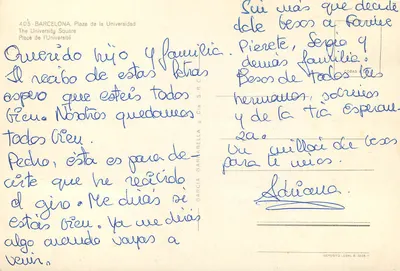 405 - BARCELONA. Plaza de la Universidad
The University Square
Place de l'Université
Querido hijo y familia.
Al recibo de estas letras
espero que esteis todos
bien. Nosotros quedamos
todos bien.
Pedro, esta es para de-
cirte que he recibido
el giro. Me dirás si
estás bien. Ya me dirás
algo cuando vayas a
venir.
Sin más que decirte
dale besos a
Pierete, Sergio y
demás familia.
Besos de todos tus
hermanos, sobrinos
y de la tia Esperan-
za.
Un millón de besos
para ti míos.
Adriana